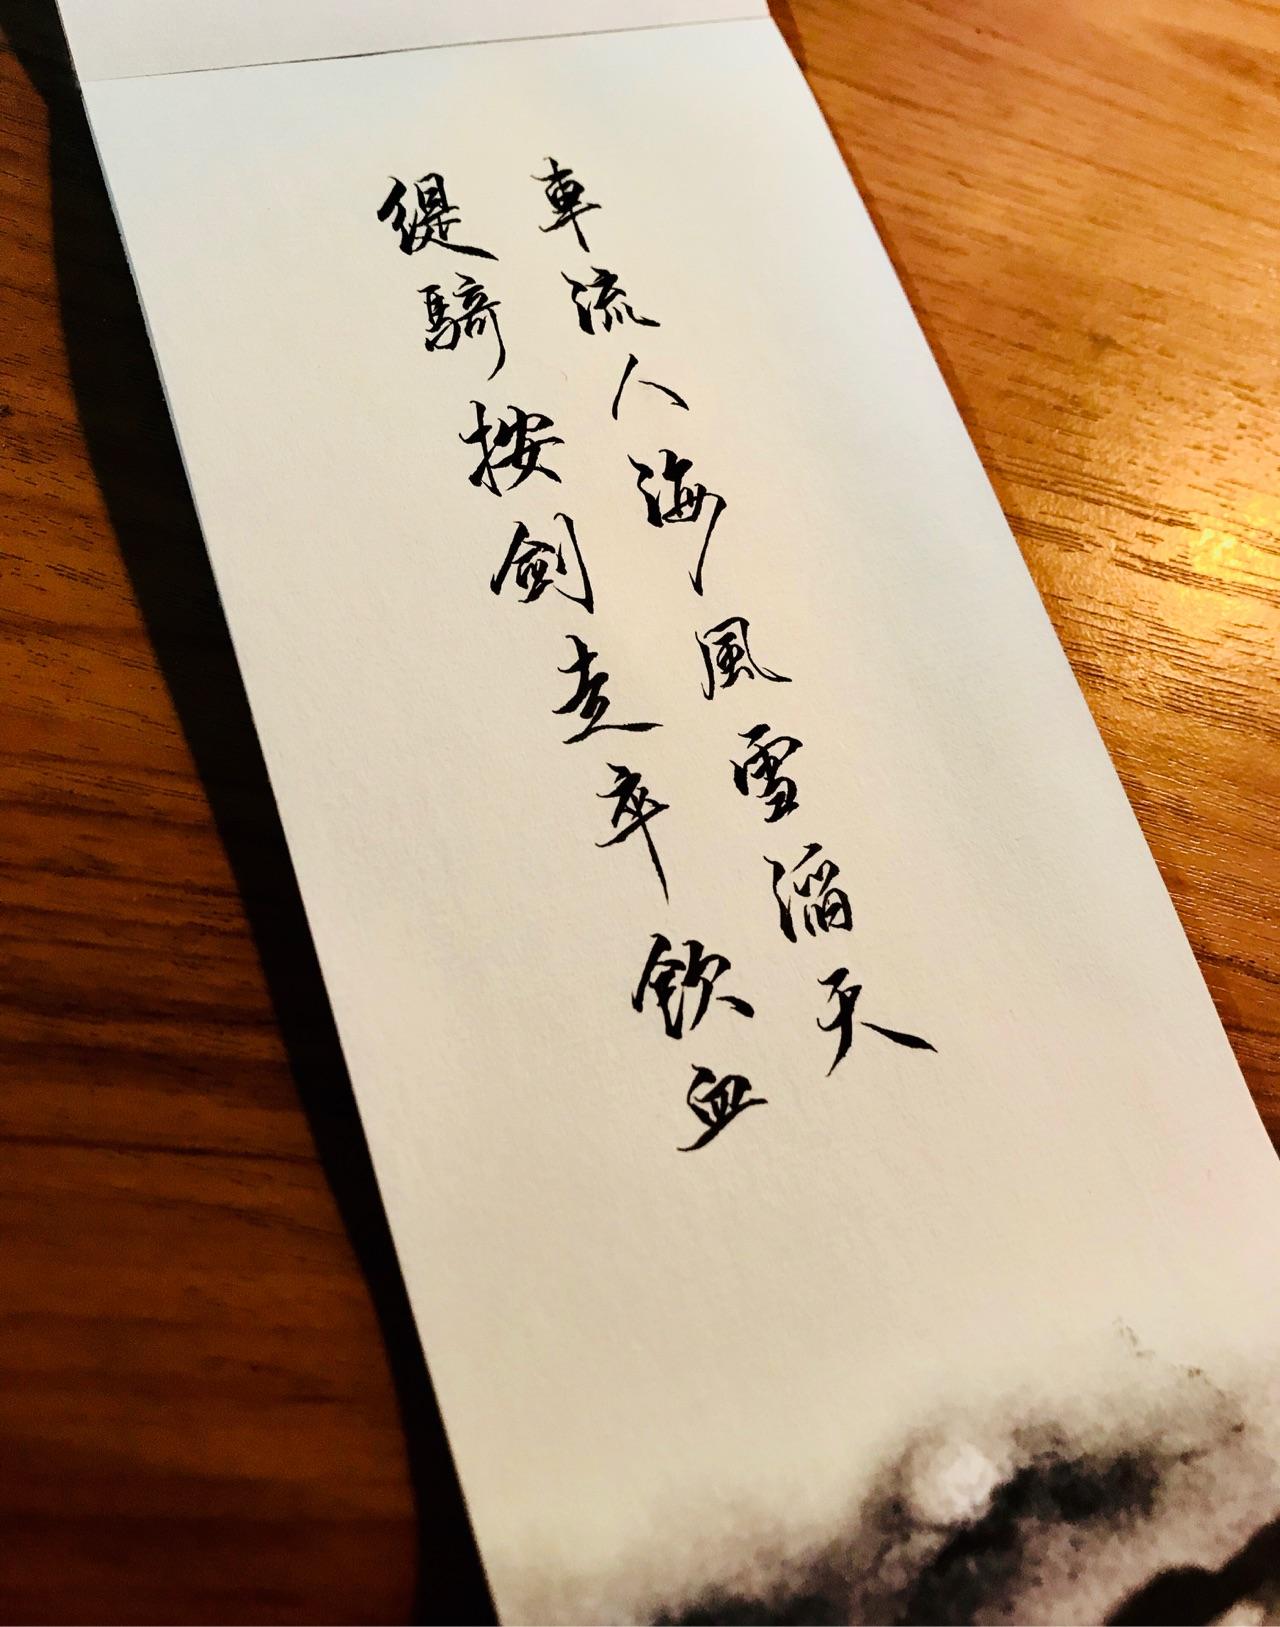 車流人海風雪滔天
緹騎按劍走卒飲血